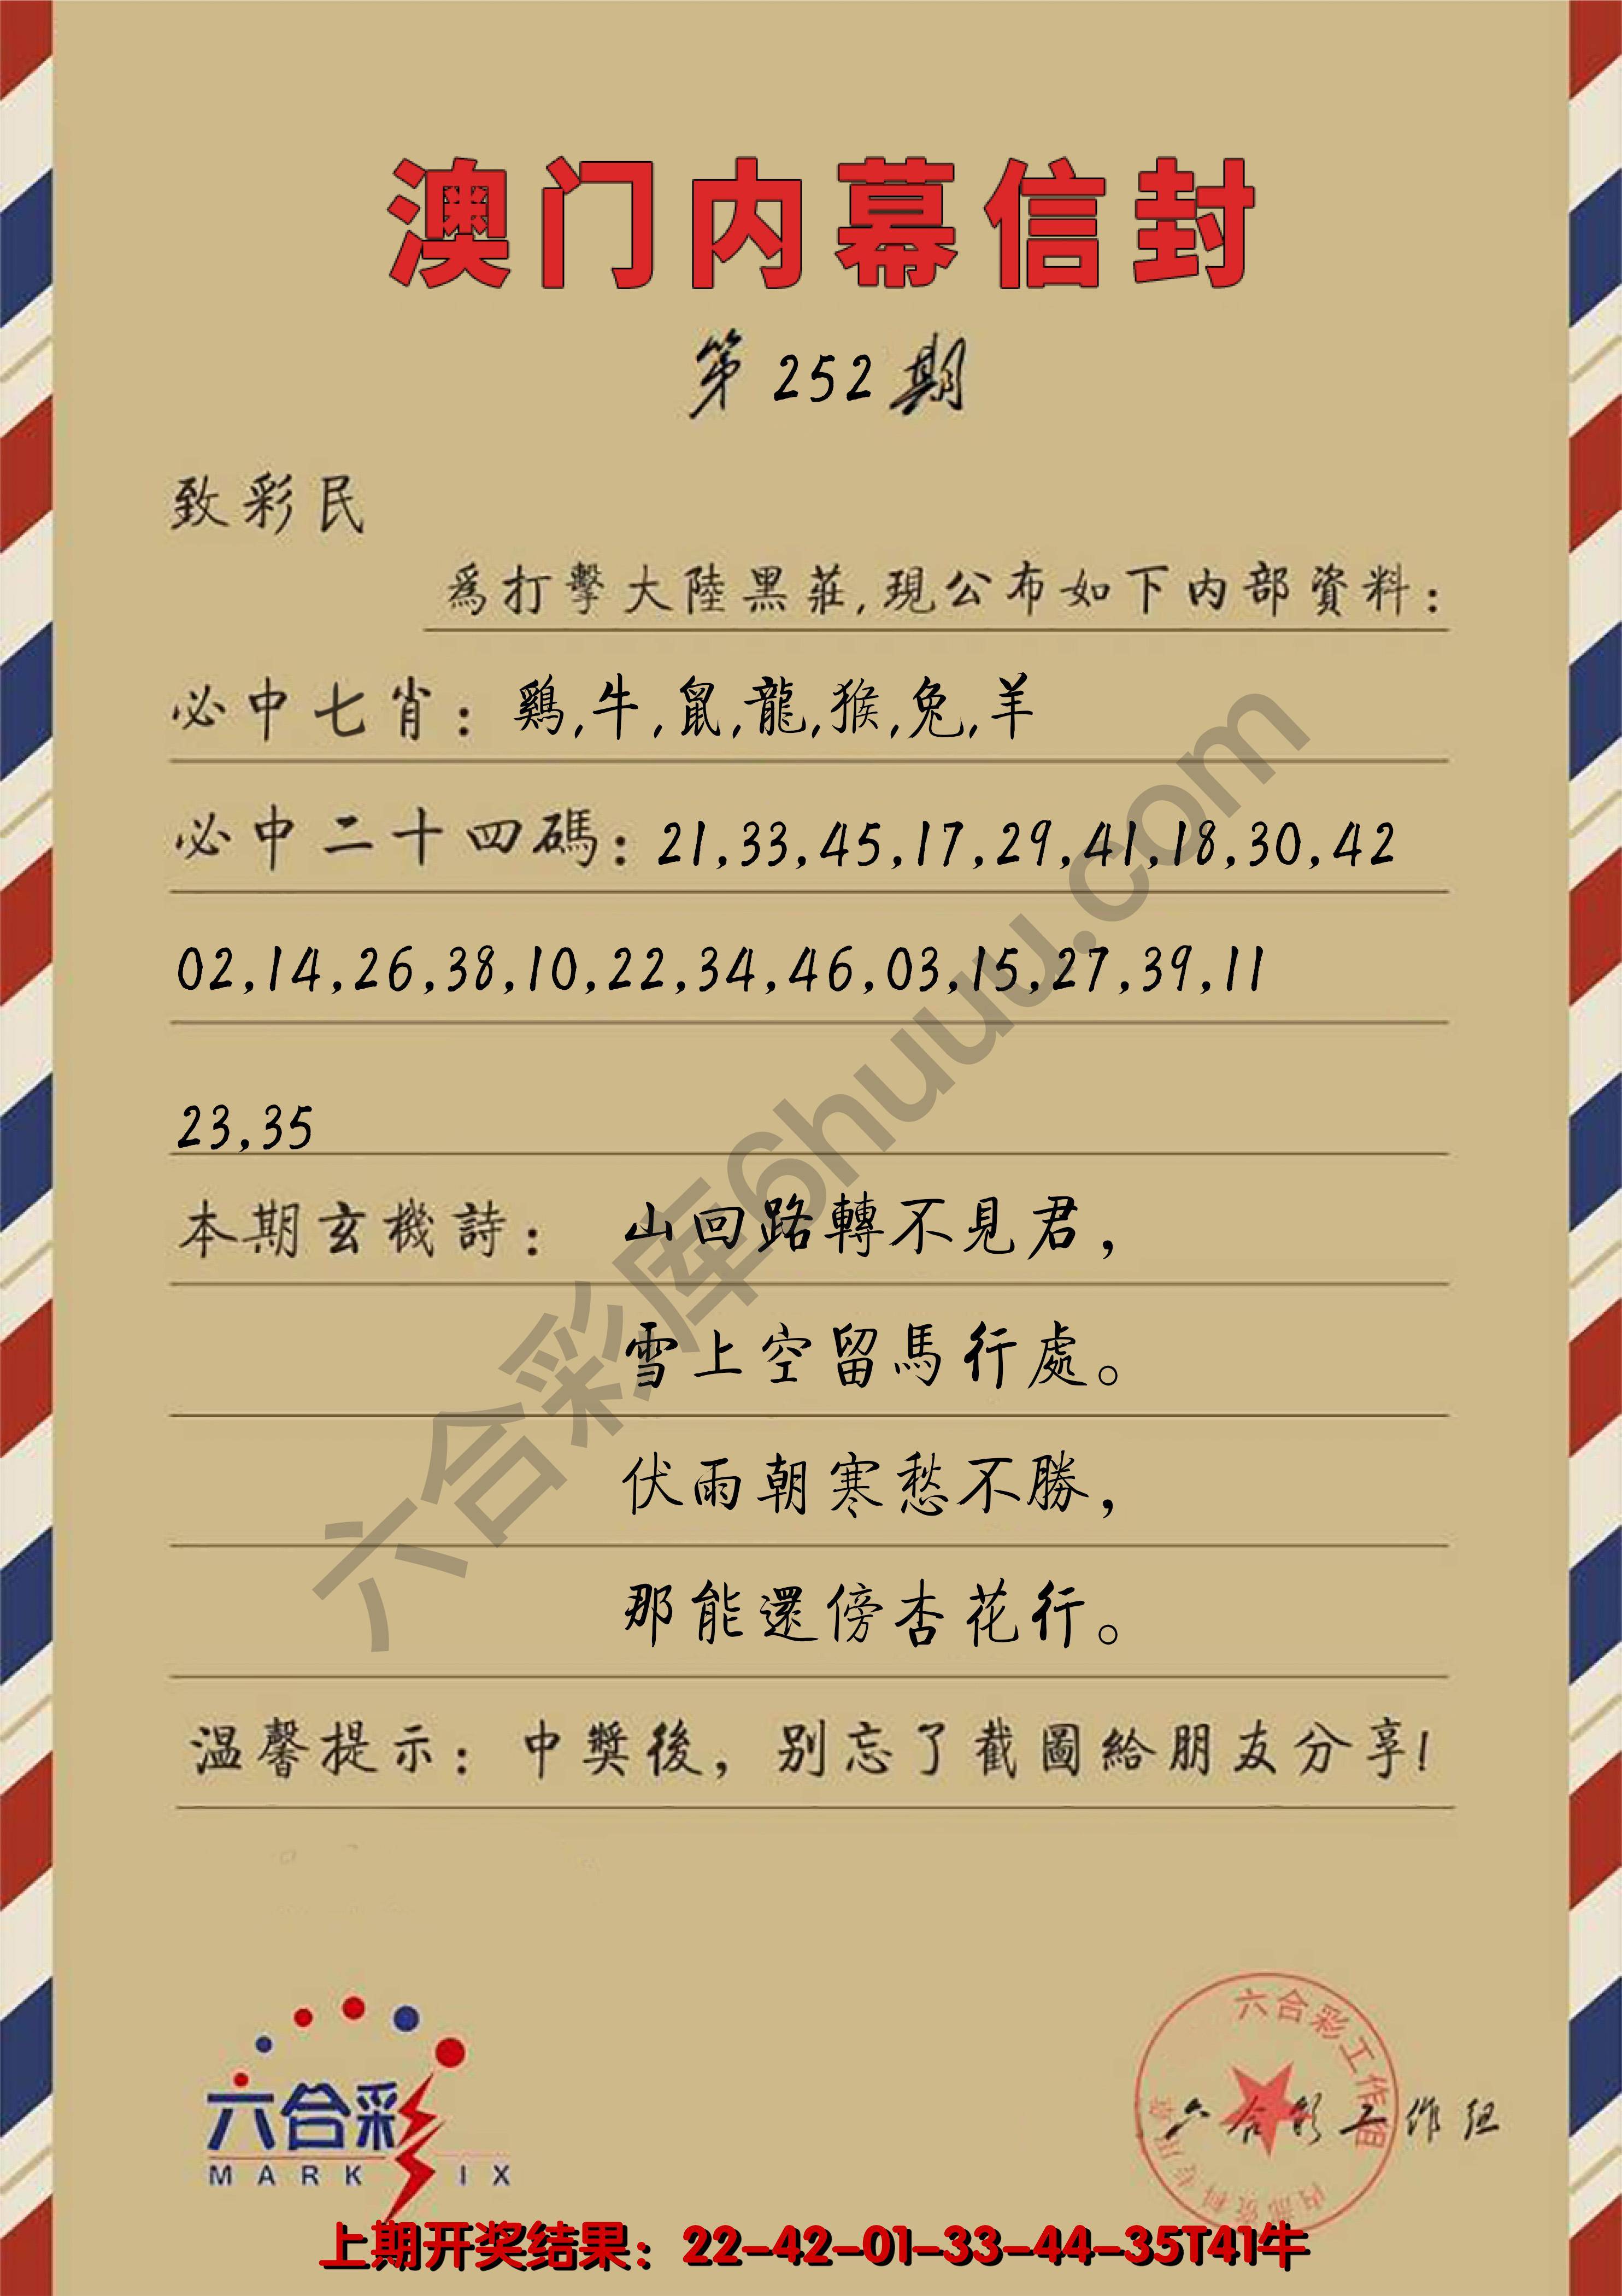 澳门内幕信封
第252期
致彩民
爲打擊大陸黑莊,現公布如下内部資料:
必中七肖: 鷄,牛,鼠,龍,猴,兔,羊
必中二十四碼: 21,33,45,17,29,41,18,30,42
02,14,26,38,10,22,34,46,03,15,27,39,11
23,35
本期玄機詩: 山回路轉不見君,
雪上空留馬行處。
伏雨朝寒愁不勝,
那能還傍杏花行。
温馨提示: 中獎後, 别忘了截圖給朋友分享!
六合彩库6huuu.com
六合彩
MARK IX
六合彩工作组
六合彩工作组
上期开奖结果: 22-42-01-33-44-35T41牛